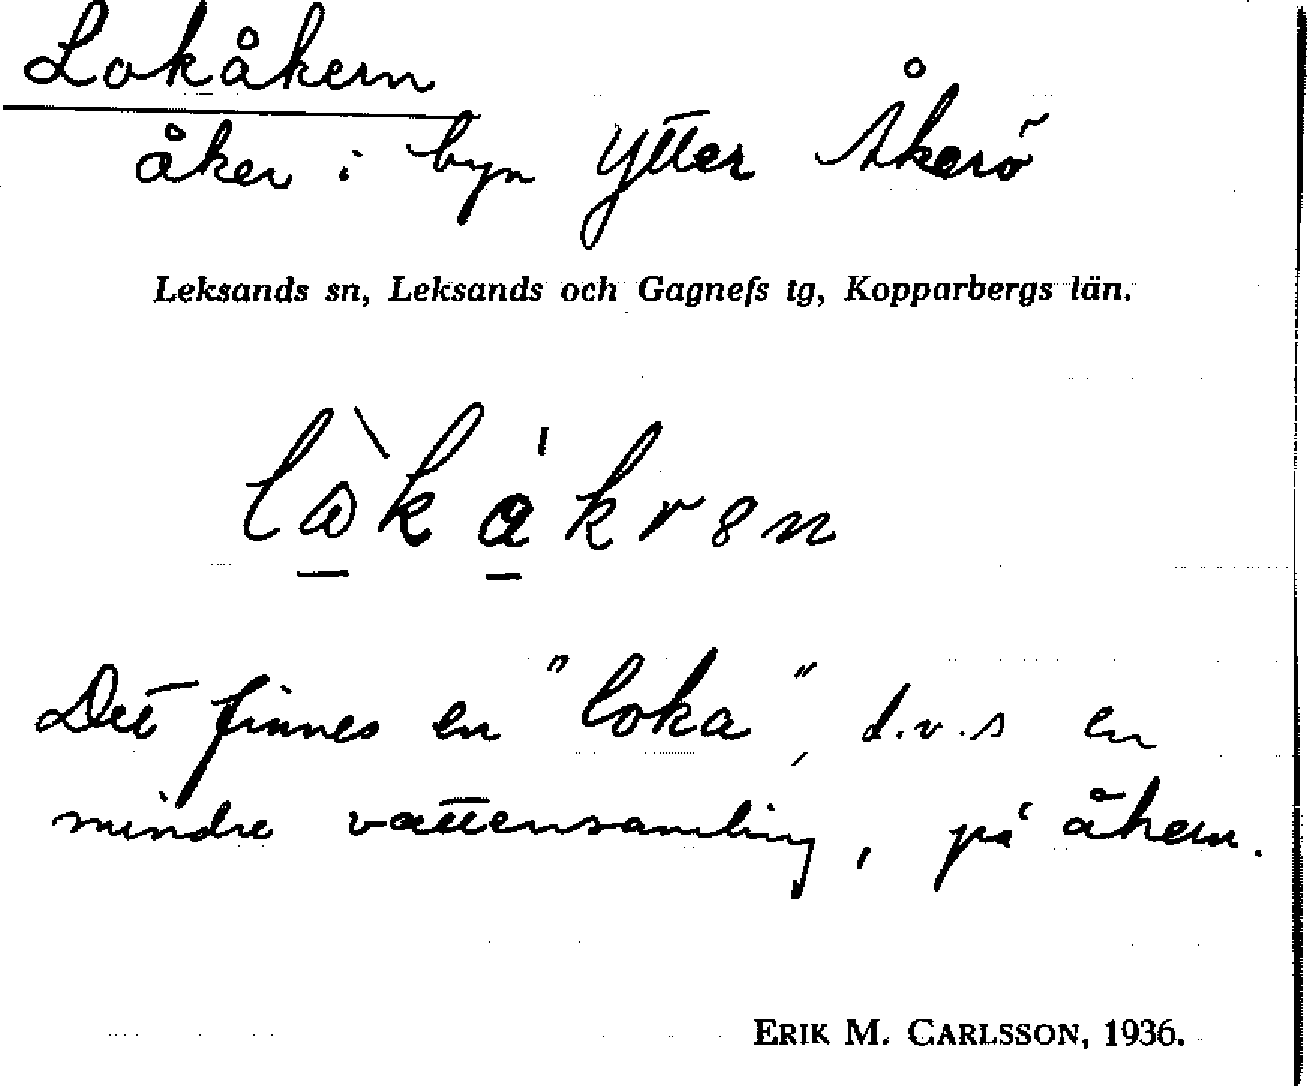 Lokåkern
åker i byn Ytter Åkerö
Leksands sn, Leksands och Gagnefs tg, Kopparbergs län.
Det finnes en "loka", d.v.s en
mindre vattensamling, på åkern.
ERIK M. CARLSSON, 1936.